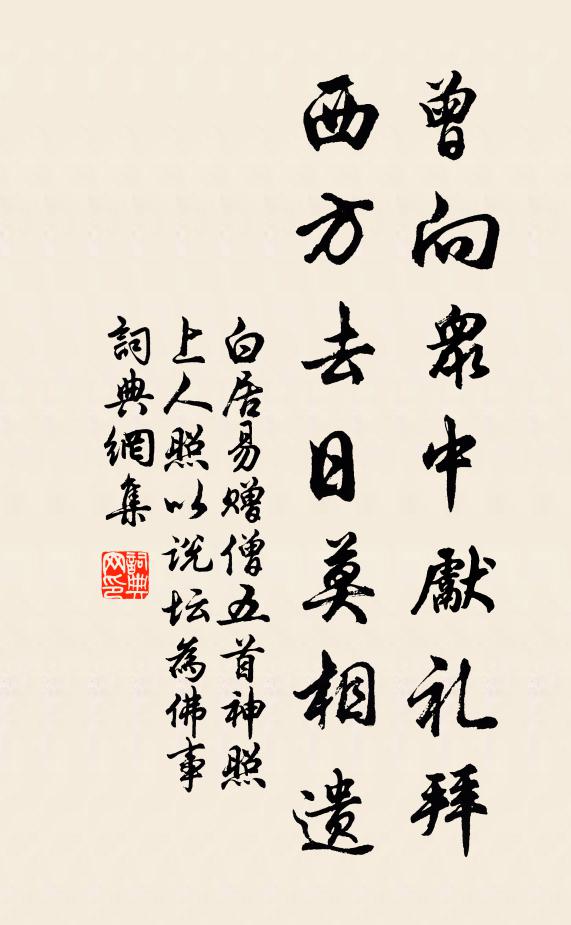 曾向眾中獻礼拜
西方去日莫相遺
白居易赠僧五首神照
上人照以说坛為佛事
詞典網集
詞典
网印